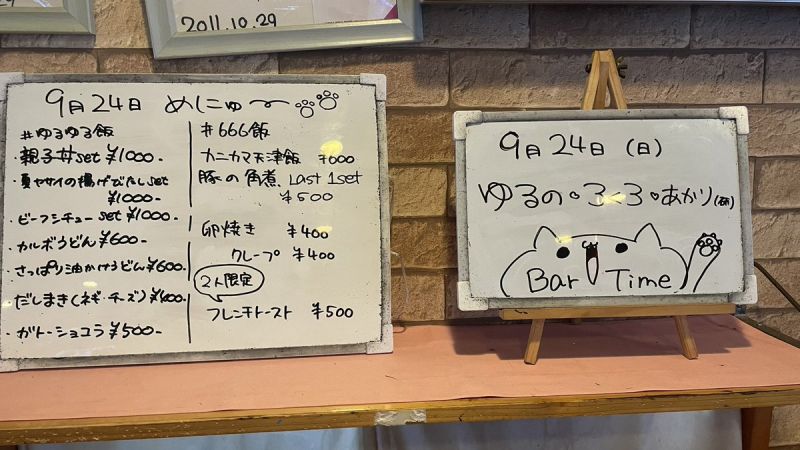 29
2011.10.29
9月24日 めにゅ〜
#ゆるゆる飯
・親子丼set ¥1000-
・夏ヤサイの揚げびたしset
¥1000-
・ビーフシチューset ¥1000-
・カルボうどん ¥600-
・さっぱり油かけうどん ¥600-
だしまき(ネギ・チーズ) ¥400-
・ガトーショコラ ¥500-
#666飯
カニカマ天津飯 ¥600
豚の角煮 Last 1set
¥500
卵焼き ¥400
クレープ ¥400
2人限定
フレンチトースト ¥500
9月24日(日)
ゆるの・ろくろ・あかり(研)
Bar Time